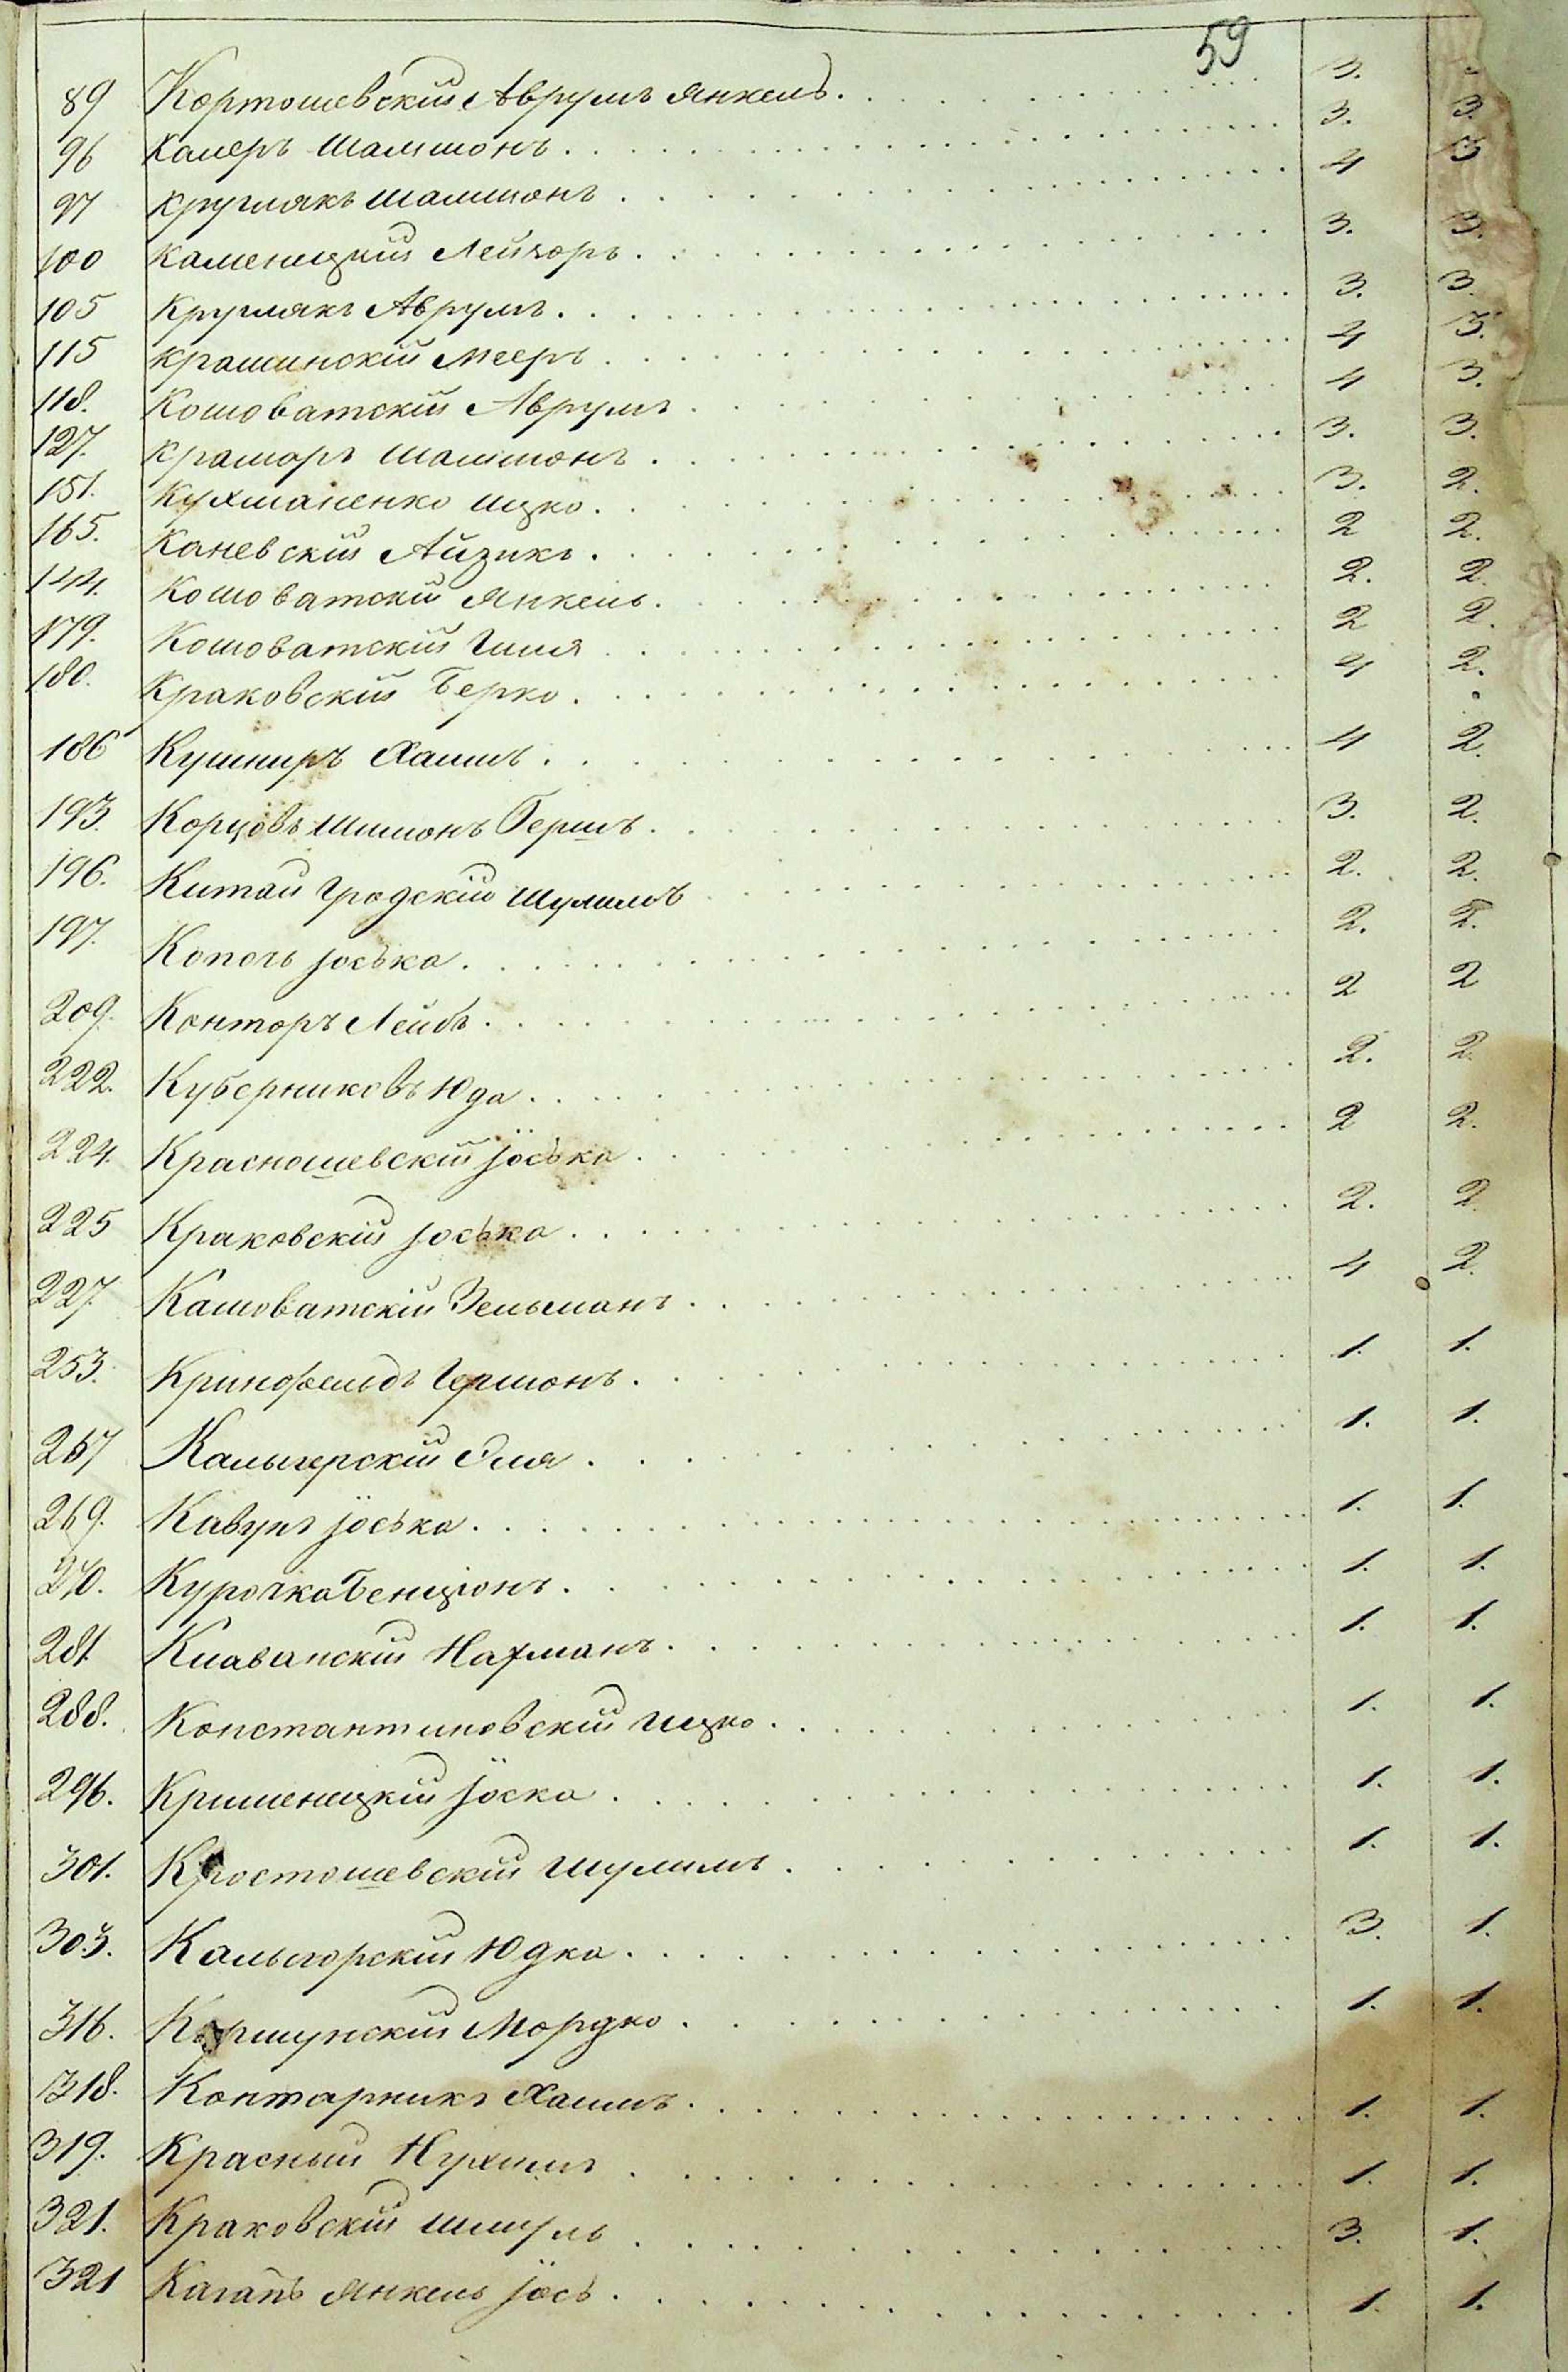 59
89 Кортошевскій Аврумъ Янкель. 3.
96 Камеръ Шамшонъ. 3. 3.
97 Круглякъ Шамшонъ 4 3
100 Каменецкій Лейзоръ. 3. 3.
105 Круглякъ Аврумъ. 3. 3.
115 Крашинскій Мееръ. 4 3.
118. Кошоватскій Аврумъ 4 3.
127. Краморъ Шамшонъ. 3. 3.
151. Кухманенко Ицко. 3. 2.
165. Каневскій Айзикъ. 2 2.
144. Кошоватскій Янкель. 2. 2.
179. Кошоватскій Гиля 2 2.
180. Краковскій Берко. 4 2.
186 Кушниръ Хаимъ. 4 2.
193. Корцовъ Шимонъ Гершъ. 3. 2.
196. Китай городскій Шулимъ 2. 2.
197. Копочь Јоська. 2. 2.
209. Конторъ Лейбъ. 2 2
222. Куберниковъ Юда. 2. 2.
224. Красношевскій Јоська. 2 2.
225 Краковскій Јоська. 2. 2.
227. Кашоватскій Зельманъ. 4 2.
253. Кринфельдъ Гершонъ. 1. 1.
257 Кальнерскій Эля. 1. 1.
269. Кавунъ Јоська. 1. 1.
270. Курочка Бенціонъ. 1. 1.
281 Нахманъ. 1. 1.
288. Константиновскій Ицко. 1. 1.
296. Кришенецкій Јоска. 1. 1.
301. Шулимъ. 1. 1.
303. Кальнорскій Юдка. 3. 1.
316. Коршунскій Мордко. 1. 1.
318. Контарникъ Хаимъ. 1. 1.
319. Красный Нухимъ. 1. 1.
321. Краковскій Шмуль 3. 1.
321 Каганъ Янкель Јось. 1. 1.